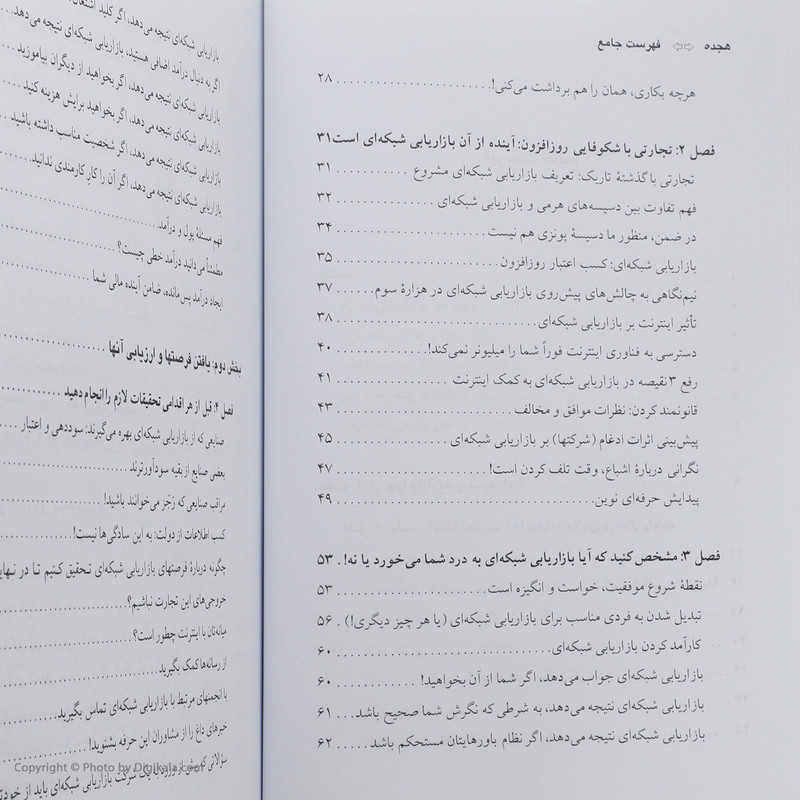 هجده ⇦⇨ فهرست جامع
هرچه بکاری، همان را هم برداشت می‌کنی! ........ ۲۸
فصل ۲: تجارتی با شکوفایی روزافزون: آینده از آن بازاریابی شبکه‌ای است ۳۱
تجارتی با گذشتهٔ تاریک: تعریف بازاریابی شبکه‌ای مشروع ........ ۳۱
فهم تفاوت بین دسیسه‌های هرمی و بازاریابی شبکه‌ای ........ ۳۲
در ضمن، منظور ما دسیسهٔ پونزی هم نیست ........ ۳۴
بازاریابی شبکه‌ای: کسب اعتبار روزافزون ........ ۳۵
نیم‌نگاهی به چالش‌های پیش‌روی بازاریابی شبکه‌ای در هزارهٔ سوم ...... ۳۷
تأثیر اینترنت بر بازاریابی شبکه‌ای ........ ۳۸
دسترسی به فناوری اینترنت فوراً شما را میلیونر نمی‌کند! ........ ۴۰
رفع ۳ نقیصه در بازاریابی شبکه‌ای به کمک اینترنت ........ ۴۱
قانونمند کردن: نظرات موافق و مخالف ........ ۴۳
پیش‌بینی اثرات ادغام (شرکتها) بر بازاریابی شبکه‌ای ........ ۴۵
نگرانی دربارهٔ اشباع، وقت تلف کردن است! ........ ۴۷
پیدایش حرفه‌ای نوین ........ ۴۹
فصل ۳: مشخص کنید که آیا بازاریابی شبکه‌ای به درد شما می‌خورد یا نه! . ۵۳
نقطهٔ شروع موفقیت، خواست و انگیزه است ........ ۵۳
تبدیل شدن به فردی مناسب برای بازاریابی شبکه‌ای (یا هر چیز دیگری!) . ۵۶
کارآمد کردن بازاریابی شبکه‌ای ........ ۶۰
بازاریابی شبکه‌ای جواب می‌دهد، اگر شما از آن بخواهید! ........ ۶۰
بازاریابی شبکه‌ای نتیجه می‌دهد، به شرطی که نگرش شما صحیح باشد ... ۶۱
بازاریابی شبکه‌ای نتیجه می‌دهد، اگر نظام باورهایتان مستحکم باشد ..... ۶۲
بازاریابی شبکه‌ای نتیجه می‌دهد، اگر کلید اشتغال
اگر به دنبال درآمد اضافی هستید، بازاریابی شبکه‌ای نتیجه می‌دهد
بازاریابی شبکه‌ای نتیجه می‌دهد، اگر بخواهید از دیگران بیاموزید
بازاریابی شبکه‌ای نتیجه می‌دهد، اگر بخواهید برایش هزینه کنید
بازاریابی شبکه‌ای نتیجه می‌دهد، اگر شخصیت مناسب داشته باشید
بازاریابی شبکه‌ای نتیجه می‌دهد، اگر آن را کار کارمندی ندانید
فهم مسئلهٔ پول و درآمد
مطمئناً می‌دانید درآمد خطی چیست؟
ایجاد درآمد پس‌مانده، ضامن آینده مالی شما
بخش دوم: یافتن فرصتها و ارزیابی آنها
فصل ۴: قبل از هر اقدامی تحقیقات لازم را انجام دهید
صنایعی که از بازاریابی شبکه‌ای بهره می‌گیرند: سوددهی و اعتبار
بعضی صنایع از بقیه سودآورترند
مراقب صنایعی که رَجَز می‌خوانند باشید!
کسب اطلاعات از دولت: به این سادگی‌ها نیست!
چگونه دربارهٔ فرصتهای بازاریابی شبکه‌ای تحقیق کنیم تا در نهایت
خروجی‌های این تجارت نباشیم؟
میانه‌تان با اینترنت چطور است؟
از رسانه‌ها کمک بگیرید
با انجمنهای مرتبط با بازاریابی شبکه‌ای تماس بگیرید
خبرهای داغ را از مشاوران این حرفه بشنوید!
سؤالاتی که پیش از ورود به یک شرکت بازاریابی شبکه‌ای باید از خود
Copyright © Photo by Digikala.com